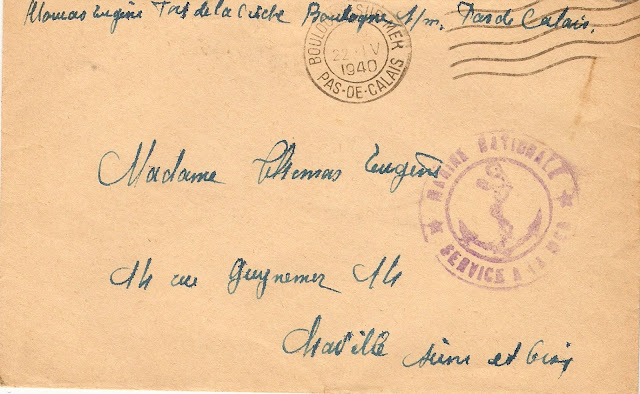 Thomas Eugène Fort de la Crèche Boulogne s/m. Pas de Calais.
BOULOGNE-SUR-MER
22 IV
1940
PAS-DE-CALAIS
Madame Thomas Eugène
MARINE NATIONALE
SERVICE A LA MER
14 rue Guynemer 14
Chaville Seine et Oise